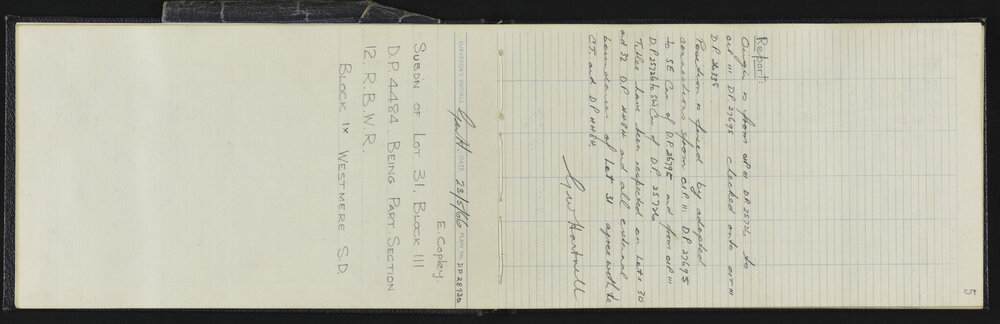 5
Report.
Origin is from OIP III DP 25726 to
OIP III DP 27695 checked onto OIT III
D.P. 26338.
Position is fixed by adopted
connections from OIP III D.P. 27695
to SE Cnr of D.P. 26795 and from OIP III
D.P. 25726 to SW Cnr of D.P. 25726
Titles have been respected on Lots 30
and 32 DP 4484 and all external
boundaries of Lot 31 agree with the
C.T. and D.P. 4484.
GW Hartnell
SURVEYOR'S INITIALS GWH DATE 23/5/66 PLAN No. D.P. 28936
E. Copley.
SUBDN OF LOT 31, BLOCK III
D.P. 4484. BEING PART SECTION
12. R.B.W.R.
BLOCK IX WESTMERE S.D.